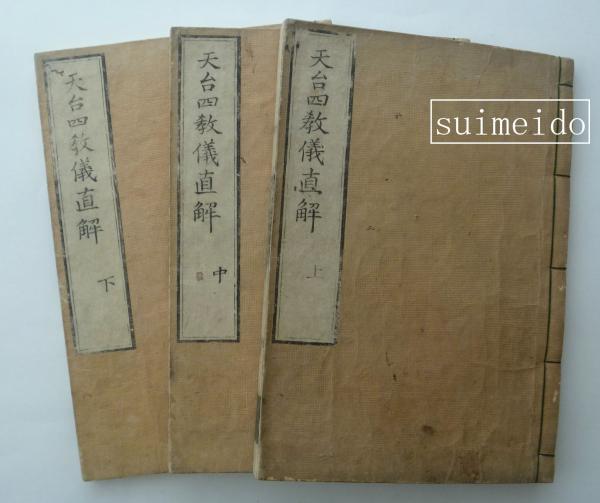 天台四教儀直解 上
天台四教儀直解 中
天台四教儀直解 下
suimeido